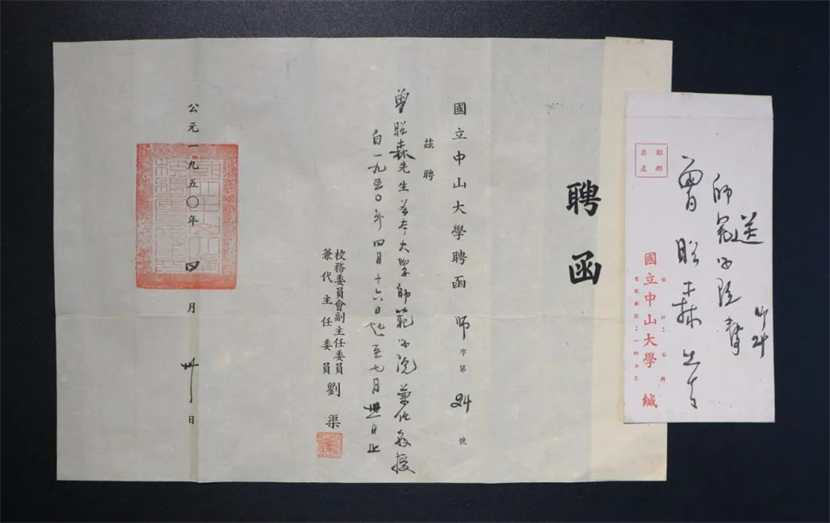 聘函
國立中山大學聘函 師字第24號
茲聘
曾昭森先生為本大學師範學院兼任教授
自一九五〇年四月十六日起至七月卅一日止
校務委員會副主任委員
兼代主任委員 劉渠
公元一九五〇年四月卅日
送
師範學院
曾昭森先生
國立中山大學 緘